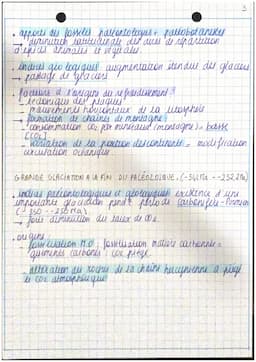 3
• apports des fossiles paléontologiques + paléobotanistes
→ diminution latitudinale des aires de répartition
d'espèces animales et végétales.
• indices géologiques : augmentation étendue des glaciers
→ passage de glaciers
• facteurs à l'origine du refroidissement :
→ tectonique des plaques
→ mouvements horizontaux de la lithosphère
→ formation de chaînes de montagnes
→ consommation CO2 par minéraux (montagnes) = baisse
[CO2]
→ variation de la position des continents = modification
circulation océanique
GRANDE GLACIATION A LA FIN DU PALÉOZOÏQUE
• indices paléontologiques et géologiques : existence d'une
importante glaciation pendt période Carbonifère-Permien
→ forte diminution du taux de CO2
• origine :
fossilisation M.O : fossilisation matière carbonée =
carbone CO2 piégé
→ altération des roches de la chaîne hercynienne a piégé
le CO2 atmosphérique